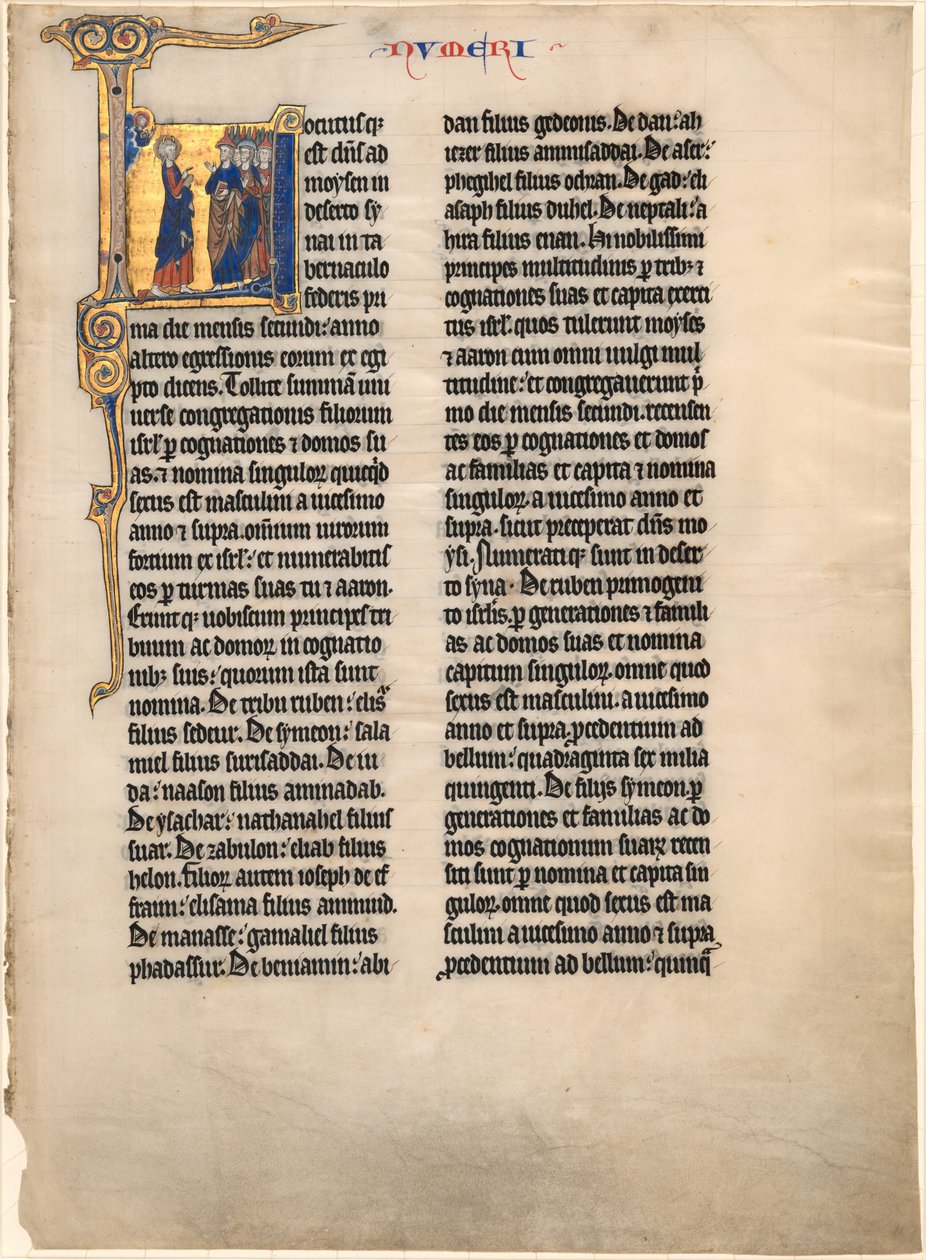 NVMERI
Locutusq;
est dñs ad
moysen in
deserto sy
nai in ta
bernaculo
federis pri
ma die mensis secundi: anno
altero egressionis eorum ex egi
pto dicens. Tollite summã uni
uerse congregationis filiorum
isrl' ꝑ cognationes ⁊ domos su
as. ⁊ nomina singuloꝝ quicq̇d
sexus est masculini a uicesimo
anno ⁊ supra. om̃ium uirorum
fortium ex isrl': et numerabitis
eos ꝑ turmas suas tu ⁊ aaron.
Eruntq; uobiscum principes tri
buum ac domoꝝ in cognatio
nib; suis: quorum ista sunt
nomina. De tribu ruben: elisᷓ
filius sedeur. De symeon: sala
miel filius surisaddai. De iu
da: naason filius aminadab.
De ysachar: nathanahel filius
suar. De zabulon: eliab filius
helon. Filioꝝ autem ioseph de ef
fraim: elisama filius ammiud.
De manasse: gamaliel filius
phadassur. De beniamin: abi
dan filius gedeonis. De dan: ah
iezer filius amisaddai. De aser:
phegihel filius ochran. De gad: eli
asaph filius duhel. De neptali: a
hira filius enan. Hi nobilissimi
principes multitudinis ꝑ trib; ⁊
cognationes suas et capita exerci
tus isrl'. quos tulerunt moyses
⁊ aaron cum omni uulgi mul
titudine: et congregauerunt pⁱ
mo die mensis secundi. recensen
tes eos ꝑ cognationes et domos
ac familias et capita ⁊ nomina
singuloꝝ. a uicesimo anno et
supra. sicut preceperat dñs mo
ysi. Numeratiq; sunt in deser
to syna. De ruben primogeni
to isrl'is. ꝑ generationes ⁊ famili
as ac domos suas et nomina
capitum singuloꝝ. omne quod
sexus est masculini. a uicesimo
anno et supra. ꝓcedentium ad
bellum: quadraginta sex milia
quingenti. De filijs symeon. ꝑ
generationes et familias ac do
mos cognationum suaꝝ recen
siti sunt ꝑ nomina et capita sin
guloꝝ. omne quod sexus est ma
sculini a uicesimo anno ⁊ supra
ꝓcedentium ad bellum: quinq̃